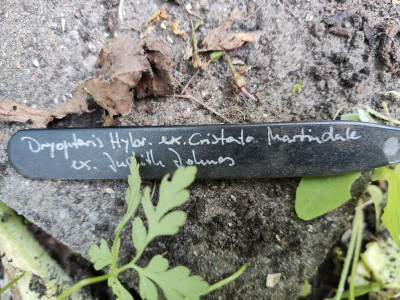 Dryopteris Hybr. ex. Cristata Martindale
ex. Judith Jolmes